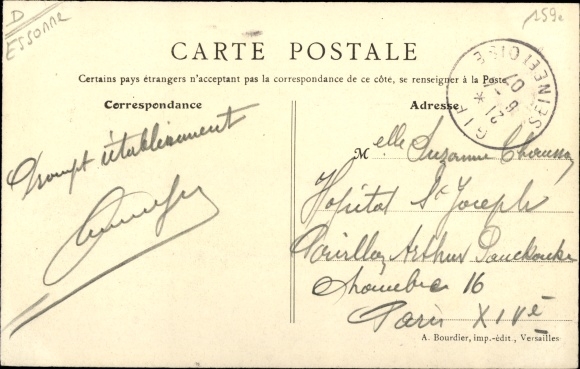 D
ESSONNE
159e
CARTE POSTALE
Certains pays étrangers n'acceptant pas la correspondance de ce côte, se renseigner à la Poste
Correspondance
Adresse
GIF
SEINE ET OISE
21 - 6 07
Prompt rétablissement
Melle Suzanne
Hôpital St Joseph
Pavillon Arthur
Chambre 16
Paris XIVe
A. Bourdier, imp.-édit., Versailles